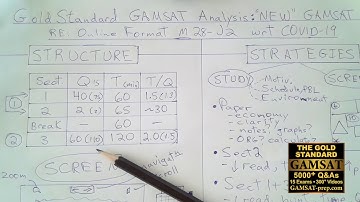 Gold Standard GAMSAT Analysis: "NEW" GAMSAT
RE: Online Format M28-J2 wrt COVID-19
STRUCTURE
Sect Q's T(min) T/Q
① 1 40(75) 60 1.5(1.3)
2 2(2) 65 ~30
Break 60 —
② 3 60(110) 120 2.0(1.5)
SCREEN
navigate
scroll
200m
STRATEGIES
STUDY
Motiv.
Schedule, PBL
Environment
• Paper
- economy
- clarity
- notes, graphs?
- ORG? calcs?
• Sect 2
- ↓ read,
• Sect 1+
- ↓
THE GOLD
STANDARD
GAMSAT
5000+ Q&As
15 Exams • 300+ Videos
GAMSAT-prep.com